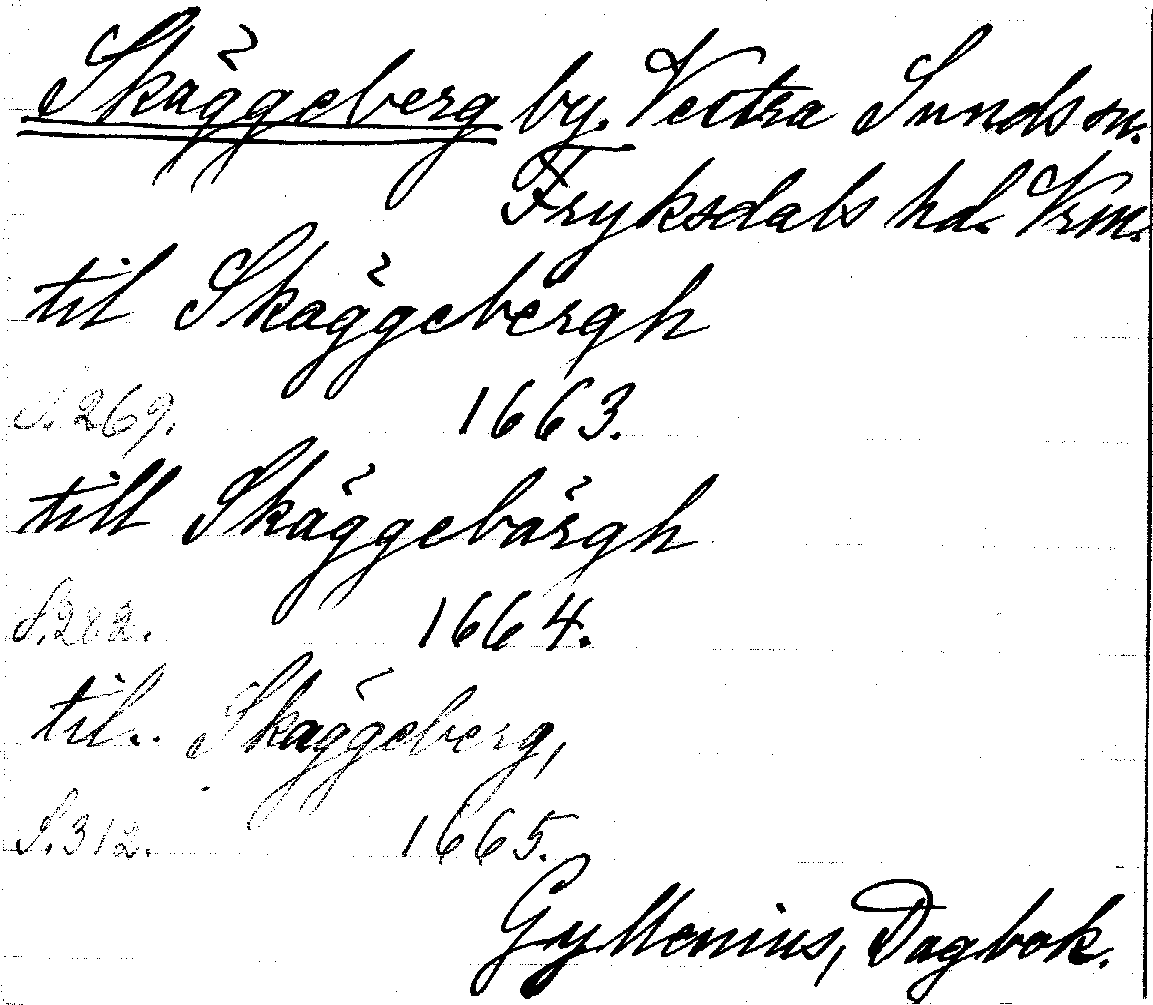 Skäggeberg by. Vestra Sunds sn.
Fryksdals hd. Vrm.
til Skäggebergh
S. 269. 1663.
till Skäggebärgh
S. 282. 1664.
til.. Skäggeberg,
S. 312. 1665.
Gyllenius, Dagbok.